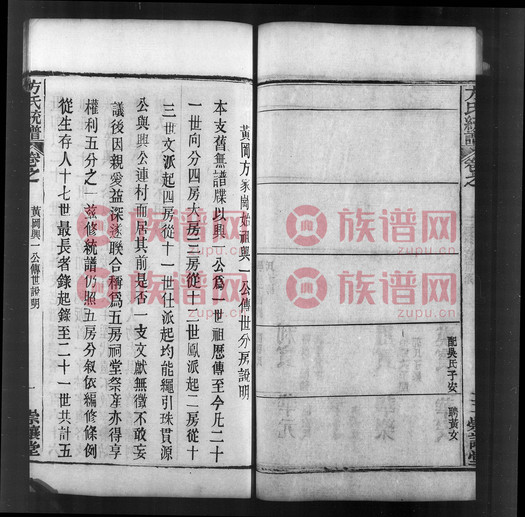 配吳氏子安
聘黃女
黃岡方家崗始祖興一公傳世分房說明
本支舊無譜牒以興一公爲一世祖歷傳至今凡二十
一世向分四房大房三房從十二世鳳派起二房從十
三世文派起四房從十一世仕派起均能繩引珠貫源
公與興公連村而居其前是否一支文獻無徵不敢妄
議後因親愛益深遂聯合稱爲五房祠堂祭產亦得享
權利五分之一茲修統譜仍照五房分叙依編修條例
從生存人十七世最長者錄起錄至二十一世共計五
方氏統譜
卷之
黃岡興一公傳世說明
一
崇讓堂
族谱网
zupu.cn
族谱网
zupu.cn
族谱网
zupu.cn
族谱网
zupu.cn